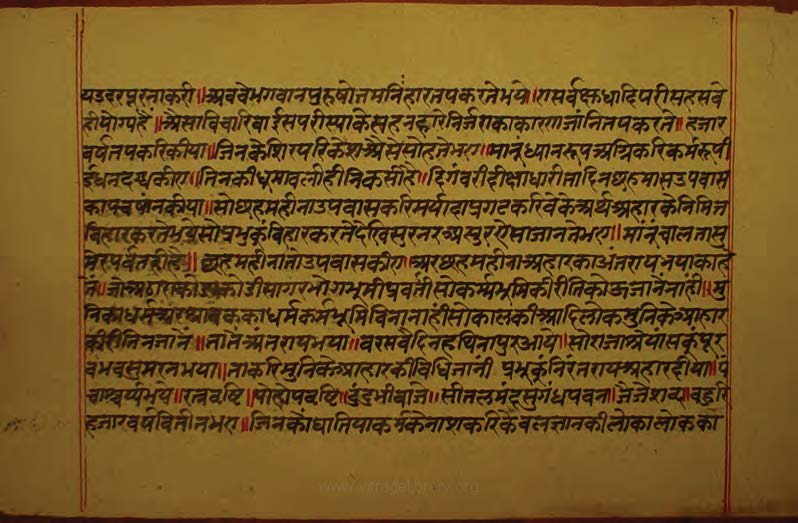 यउदरपूरनाकरी॥अबवेभगवानपुरुषोत्तमनिहारतपकरनेभये॥सर्वक्षुधादिपरीसहसवे
हीयोग्यहै॥अैसाविचारिबाईसपरीसाके सहनहारेनिर्जराकाकारणजांनितपकरने॥हजार
वर्षतपकरिकीया॥जिनकेशिरपरिकेशअैसेसोहतेभए॥मानूध्यानरूपअग्निकरिकर्मरूपी
ईंधनदग्धकीए॥तिनकीधूमावलीहीनिकसीहै॥दिगंबरीदीक्षाधारीतादिनछहमासउपवास
कीया॥सोछहमहीनाउपवासकरिमर्यादाप्रगटकरिवेकेअर्थअहारकेनिमित्त
विहारकरतभयेसोप्रभुकूंविहारकरतेदेखिसुरनरअसुरऐसाजानतेभए॥मांनूंचालतासु
मेरपर्वतहीहै॥छहमहीनातोउपवासकीए॥अरछहमहीनाअहारकाअंतरायभयाकाहे
तैं॥अठाराकोडाकोडीसागरभोगभूमीप्रवर्तीसोकर्मभूमिकीरीतिकोऊजानेंनांही॥मु
निकाधर्मअरश्रावककाधर्मकर्मभूमिविनानाहीसोकालकीआदिलोकमुनिकेआहार
कीरीतिनजानें॥तातेंअंतरायभया॥वरसवेंदिनहथिनापुरआये॥सोराजाश्रेयांसकूंपूर
वभवसुमरनभया॥ताकरिमुनिकेआहारकीविधिजानीं प्रभूकूंनिरंतरायअहारदीया॥पं
चाश्चर्यभये॥रत्नवृष्टि॥पोहोपवृष्टि॥दुंदुभीबाजे॥सीतलमंदसुगंधपवन॥जैजैशब्द॥बहुरि
हजारवर्षवितीतभए॥जिनकोंघातियाकर्मकेनाशकरिकेवलज्ञानकीलोकालोकका
www.vitragelibrary.org